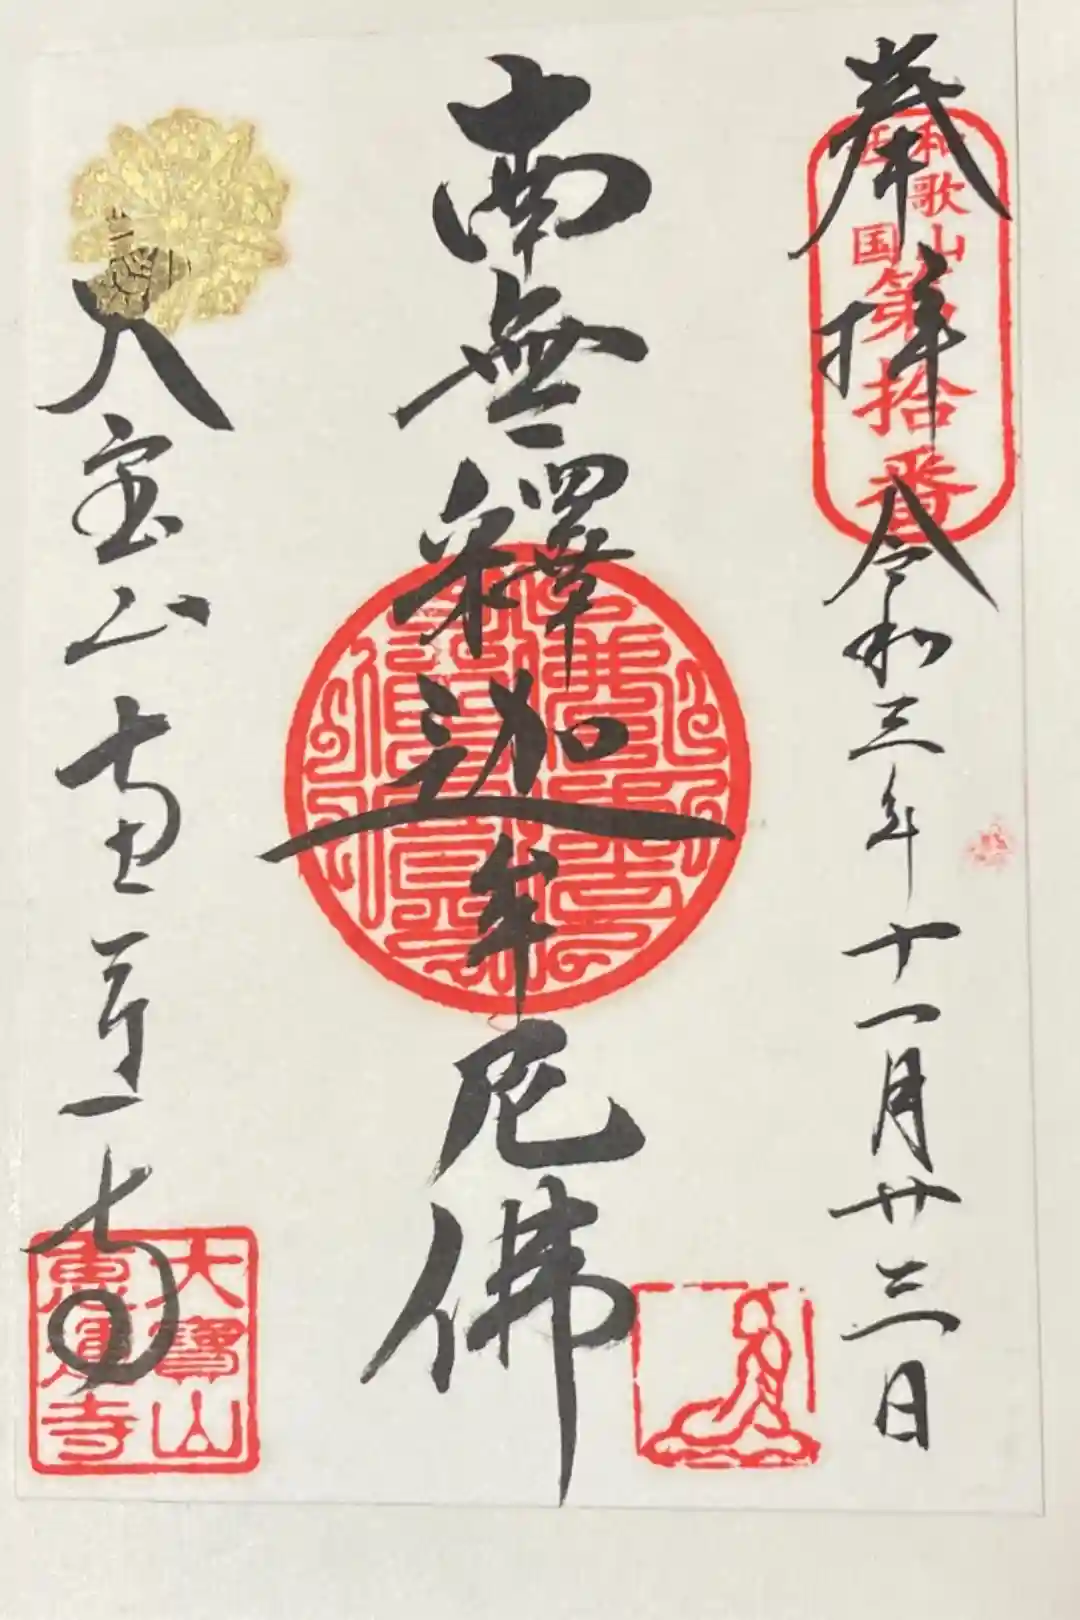 奉拝
令和三年十一月廿三日
和歌山
国
第拾番
南無釋迦牟尼佛
大宝山恵運寺
大寶山
恵運寺